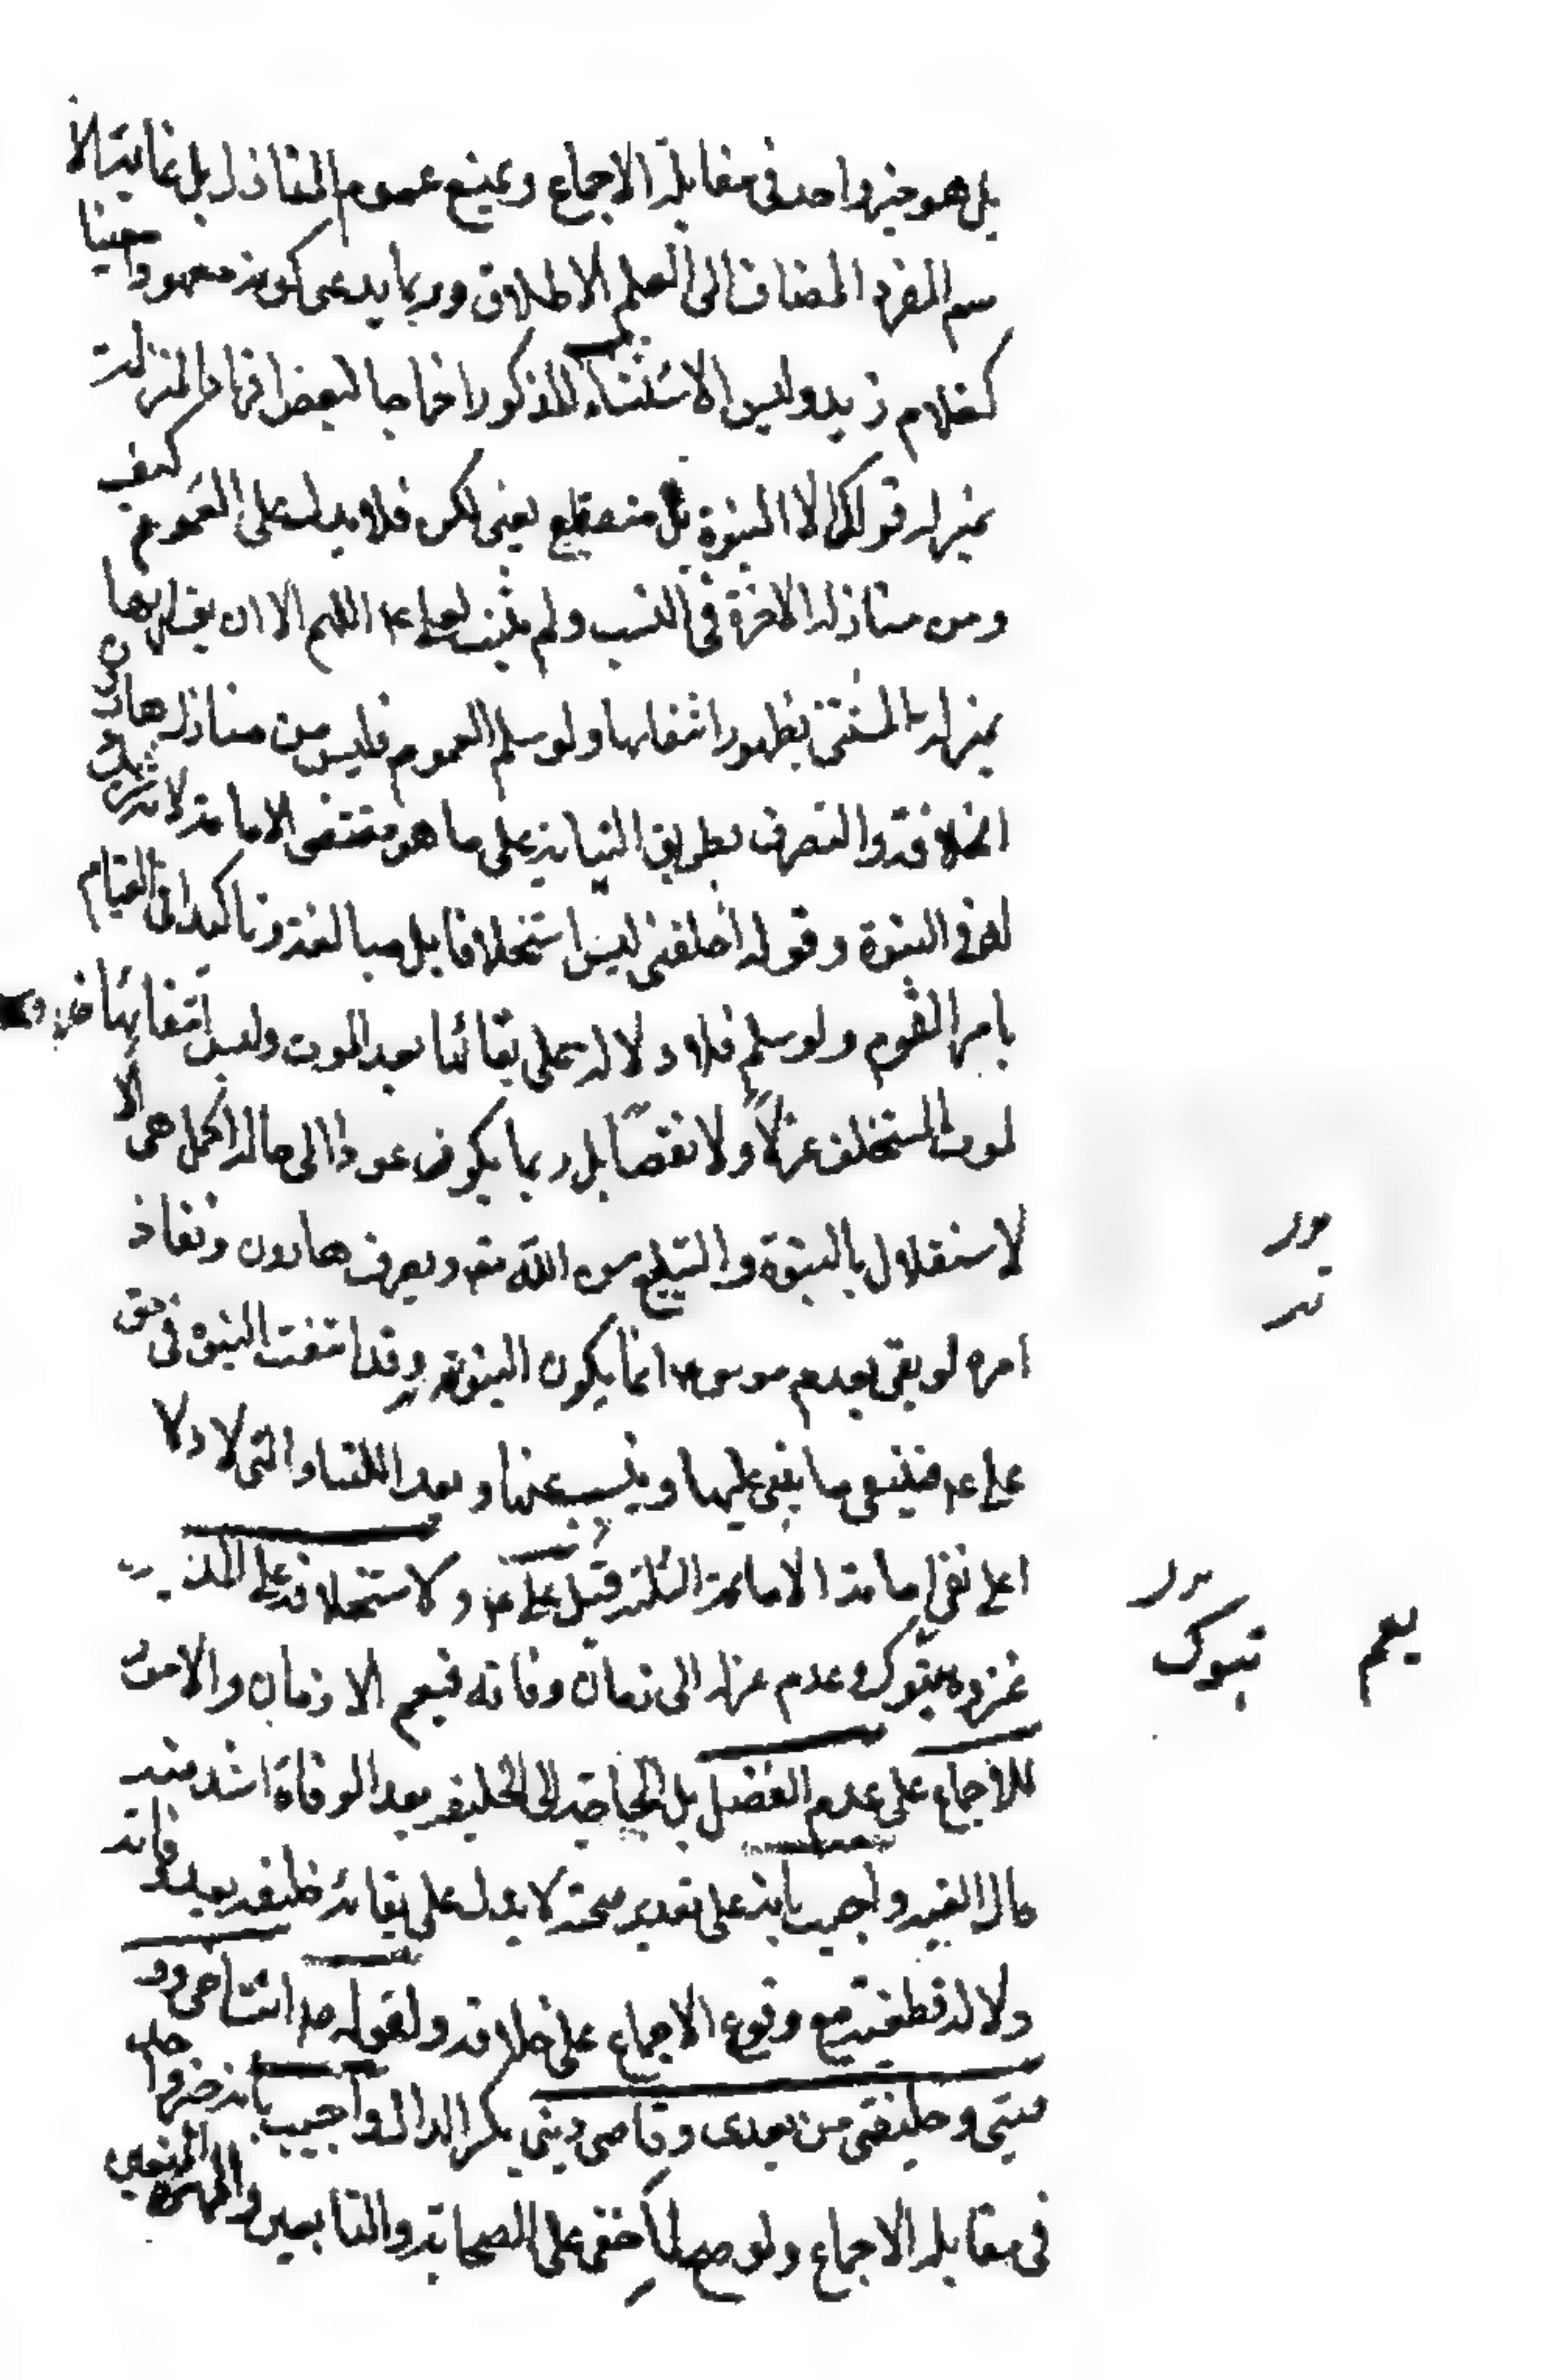 بل هو خبر واحد فى مقابلة الاجماع ويمنع عموم المنازل بل غاية الا
سم المفرد المضاف الى العلم الاطلاق وربما يدعى كونه معهودا معينا
كغلام زيد وليس الاستثناء المذكور اخراجا لبعض افراد المنزلة
بمنزلة قولك الا النبوة بل منقطع بمعنى لكن فلا يدل على العموم كيف
ومن منازله الاخوة فى النسب ولم يثبت لعلى ع اللهم الا ان يقال انها
بمنزلة المستثنى بظهور انتفائها ولو سلم العموم فليس من منازل هارون
الخلافة والتصرف بطريق النيابة على ما هو مقتضى الامامة لانه شريك
له فى النبوة وقوله اخلفنى ليس استخلافا بل مبالغة وتاكيدا فى القيام
بامر القوم ولو سلم فلا دلالة على بقائها بعد الموت وليس انتفائها
لموت المستخلف عزلا ولا نقصا بل ربما يكون عودا الى حالة اكمل هى الا
لاستقلال بالنبوة والتبليغ من الله تعم وتصرف هارون ونفاذ
امره لو بقى بعد موسى ع انما يكون النبوته وقد انتفت النبوة فى حق
على ع فينتفى ما يبتنى عليها ويتسبب عنها وبعد اللتيا والتى لا دلا
له على نفى امامة الائمة الثلثة قبل على ع ولاستخلافه على المدينة
غزوة تبوك وعدم عزله الى زمان وفاته فيعم الازمان والامور
للاجماع على عدم الفصل بل الحاجة الى الخليفة بعد الوفاة اشد منه
حال الغيبة واجيب بانه على تقدير صحته لا يدل على بقائه خليفة بعد وفاته
دلالة قطعية مع وقوع الاجماع على خلافه ولقوله ص انت اخى وو
صيتى وخليفتى من بعدى وقاضى دينى بكسر الدال واجيب بانه خبر واحد
فى مقابلة الاجماع ولو صح لما خفى على الصحابة والتابعين والمهرة المتقنين
يعم
تبوك